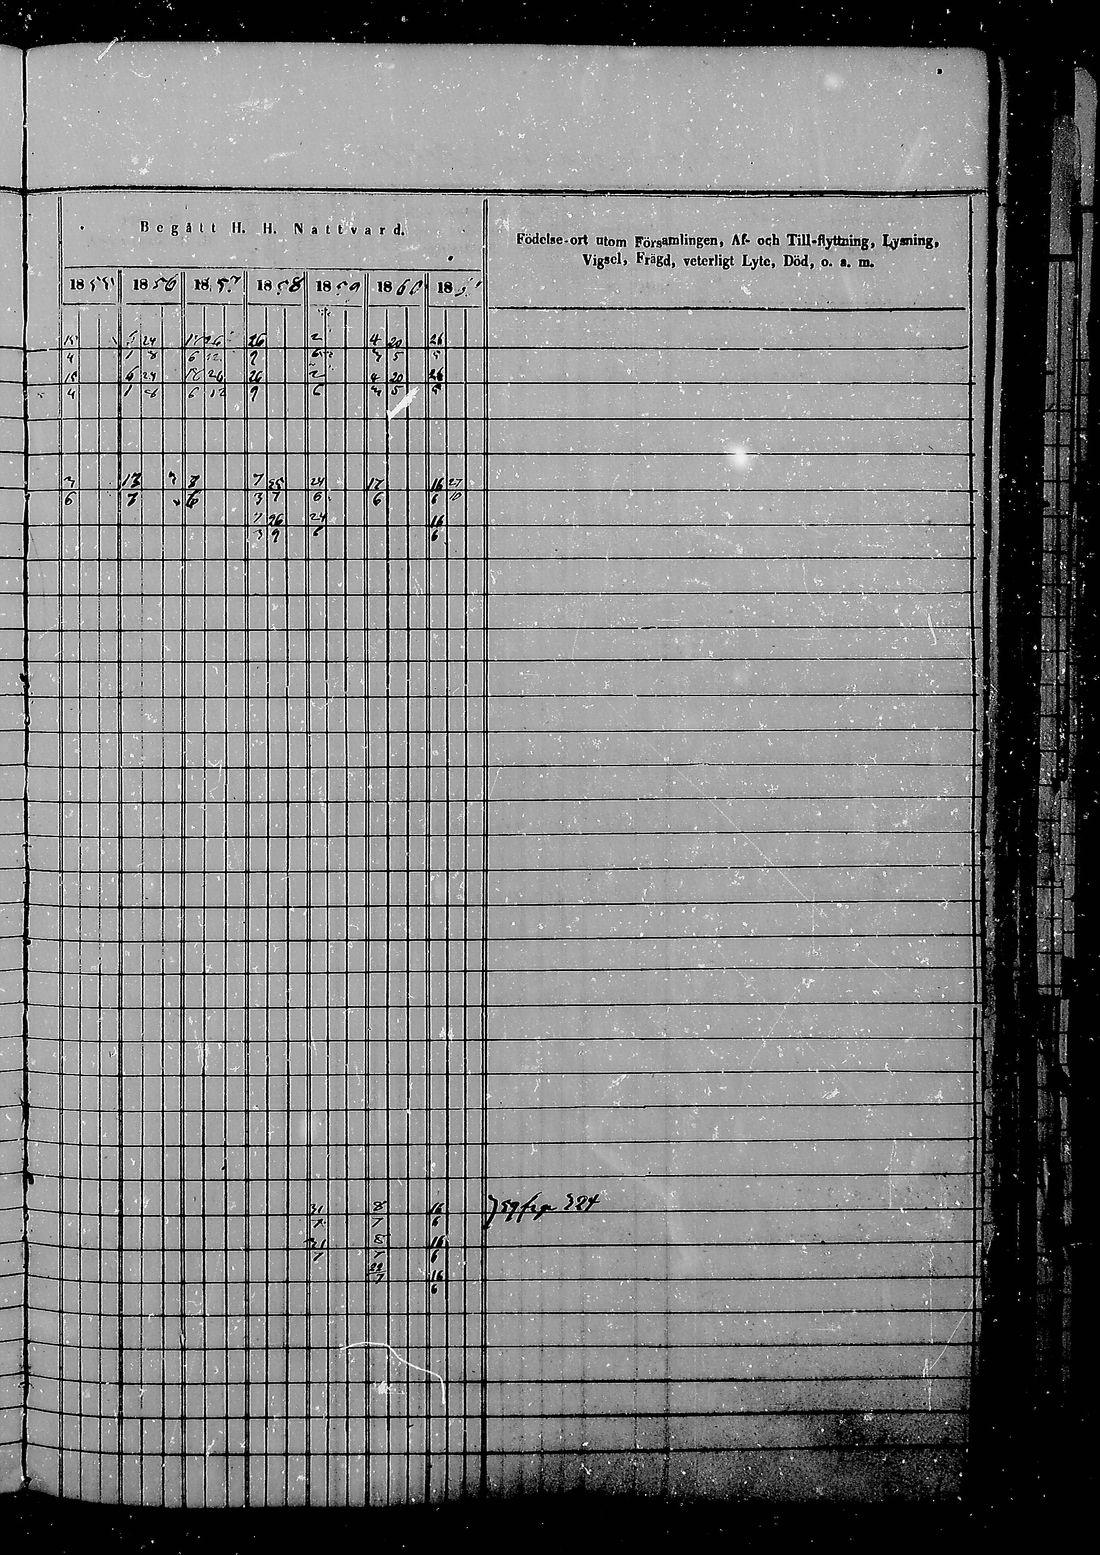 Begått H. H. Nattvard.
Födelse-ort utom Församlingen, Af- och Till-flyttning, Lysning,
Vigsel, Frägd, veterligt Lyte, Död, o. s. m.
1855 1856 1857 1858 1859 1860 18
15 24 26 26 2 4 20 26
4 8 6 12 9 6 5 5
15 6 24 26 26 2 4 20 26
4 1 8 6 12 9 6 5 5
13 3 7 25 24 17 16 27
6 7 6 3 7 6 6 6 10
7 26 24 16
3 9 6 6
31 8 16 59 fr. p. 324
7 7 6
31 8 16
7 7 6
22 16
7 6